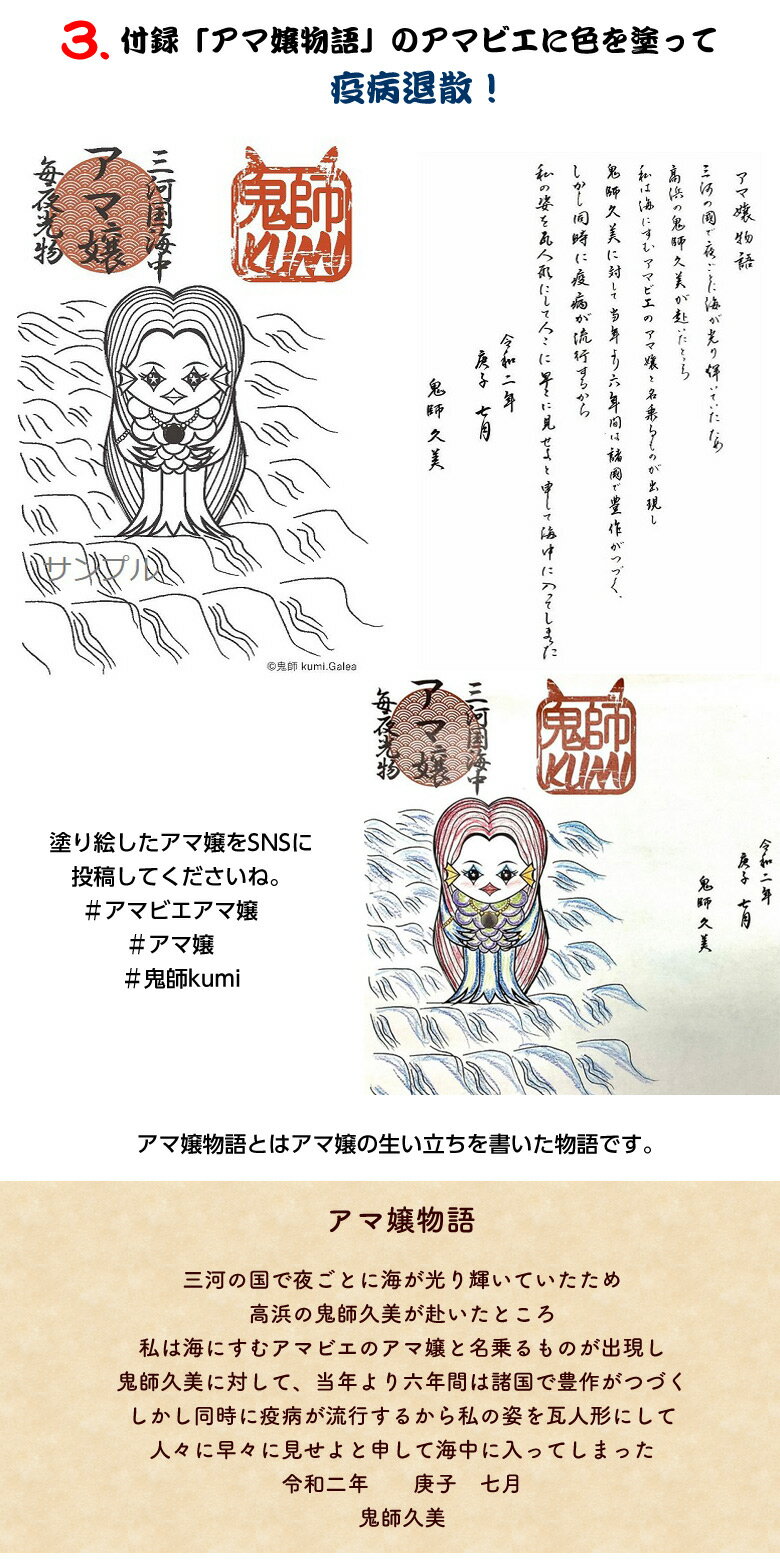 3. 付録「アマ嬢物語」のアマビエに色を塗って
疫病退散！
三河国海中
アマ嬢
毎夜光物
鬼師
KUMI
サンプル
©鬼師 kumi.Galea
アマ嬢物語
三河の国で夜ごとに海が光り輝いていたため
高浜の鬼師久美が赴いたところ
私は海にすむアマビエのアマ嬢と名乗るものが出現し
鬼師久美に対して当年より六年間は諸國で豊作がつづく、
しかし同時に疫病が流行するから
私の姿を瓦人形にして人々に早々に見せよと申して海中に入ってしまった
令和二年
庚子 七月
鬼師 久美
三河国海中
アマ嬢
毎夜光物
鬼師
KUMI
令和二年
庚子 七月
鬼師 久美
塗り絵したアマ嬢をSNSに
投稿してくださいね。
＃アマビエアマ嬢
＃アマ嬢
＃鬼師kumi
アマ嬢物語とはアマ嬢の生い立ちを書いた物語です。
アマ嬢物語
三河の国で夜ごとに海が光り輝いていたため
高浜の鬼師久美が赴いたところ
私は海にすむアマビエのアマ嬢と名乗るものが出現し
鬼師久美に対して、当年より六年間は諸国で豊作がつづく
しかし同時に疫病が流行するから私の姿を瓦人形にして
人々に早々に見せよと申して海中に入ってしまった
令和二年　　庚子　七月
鬼師久美